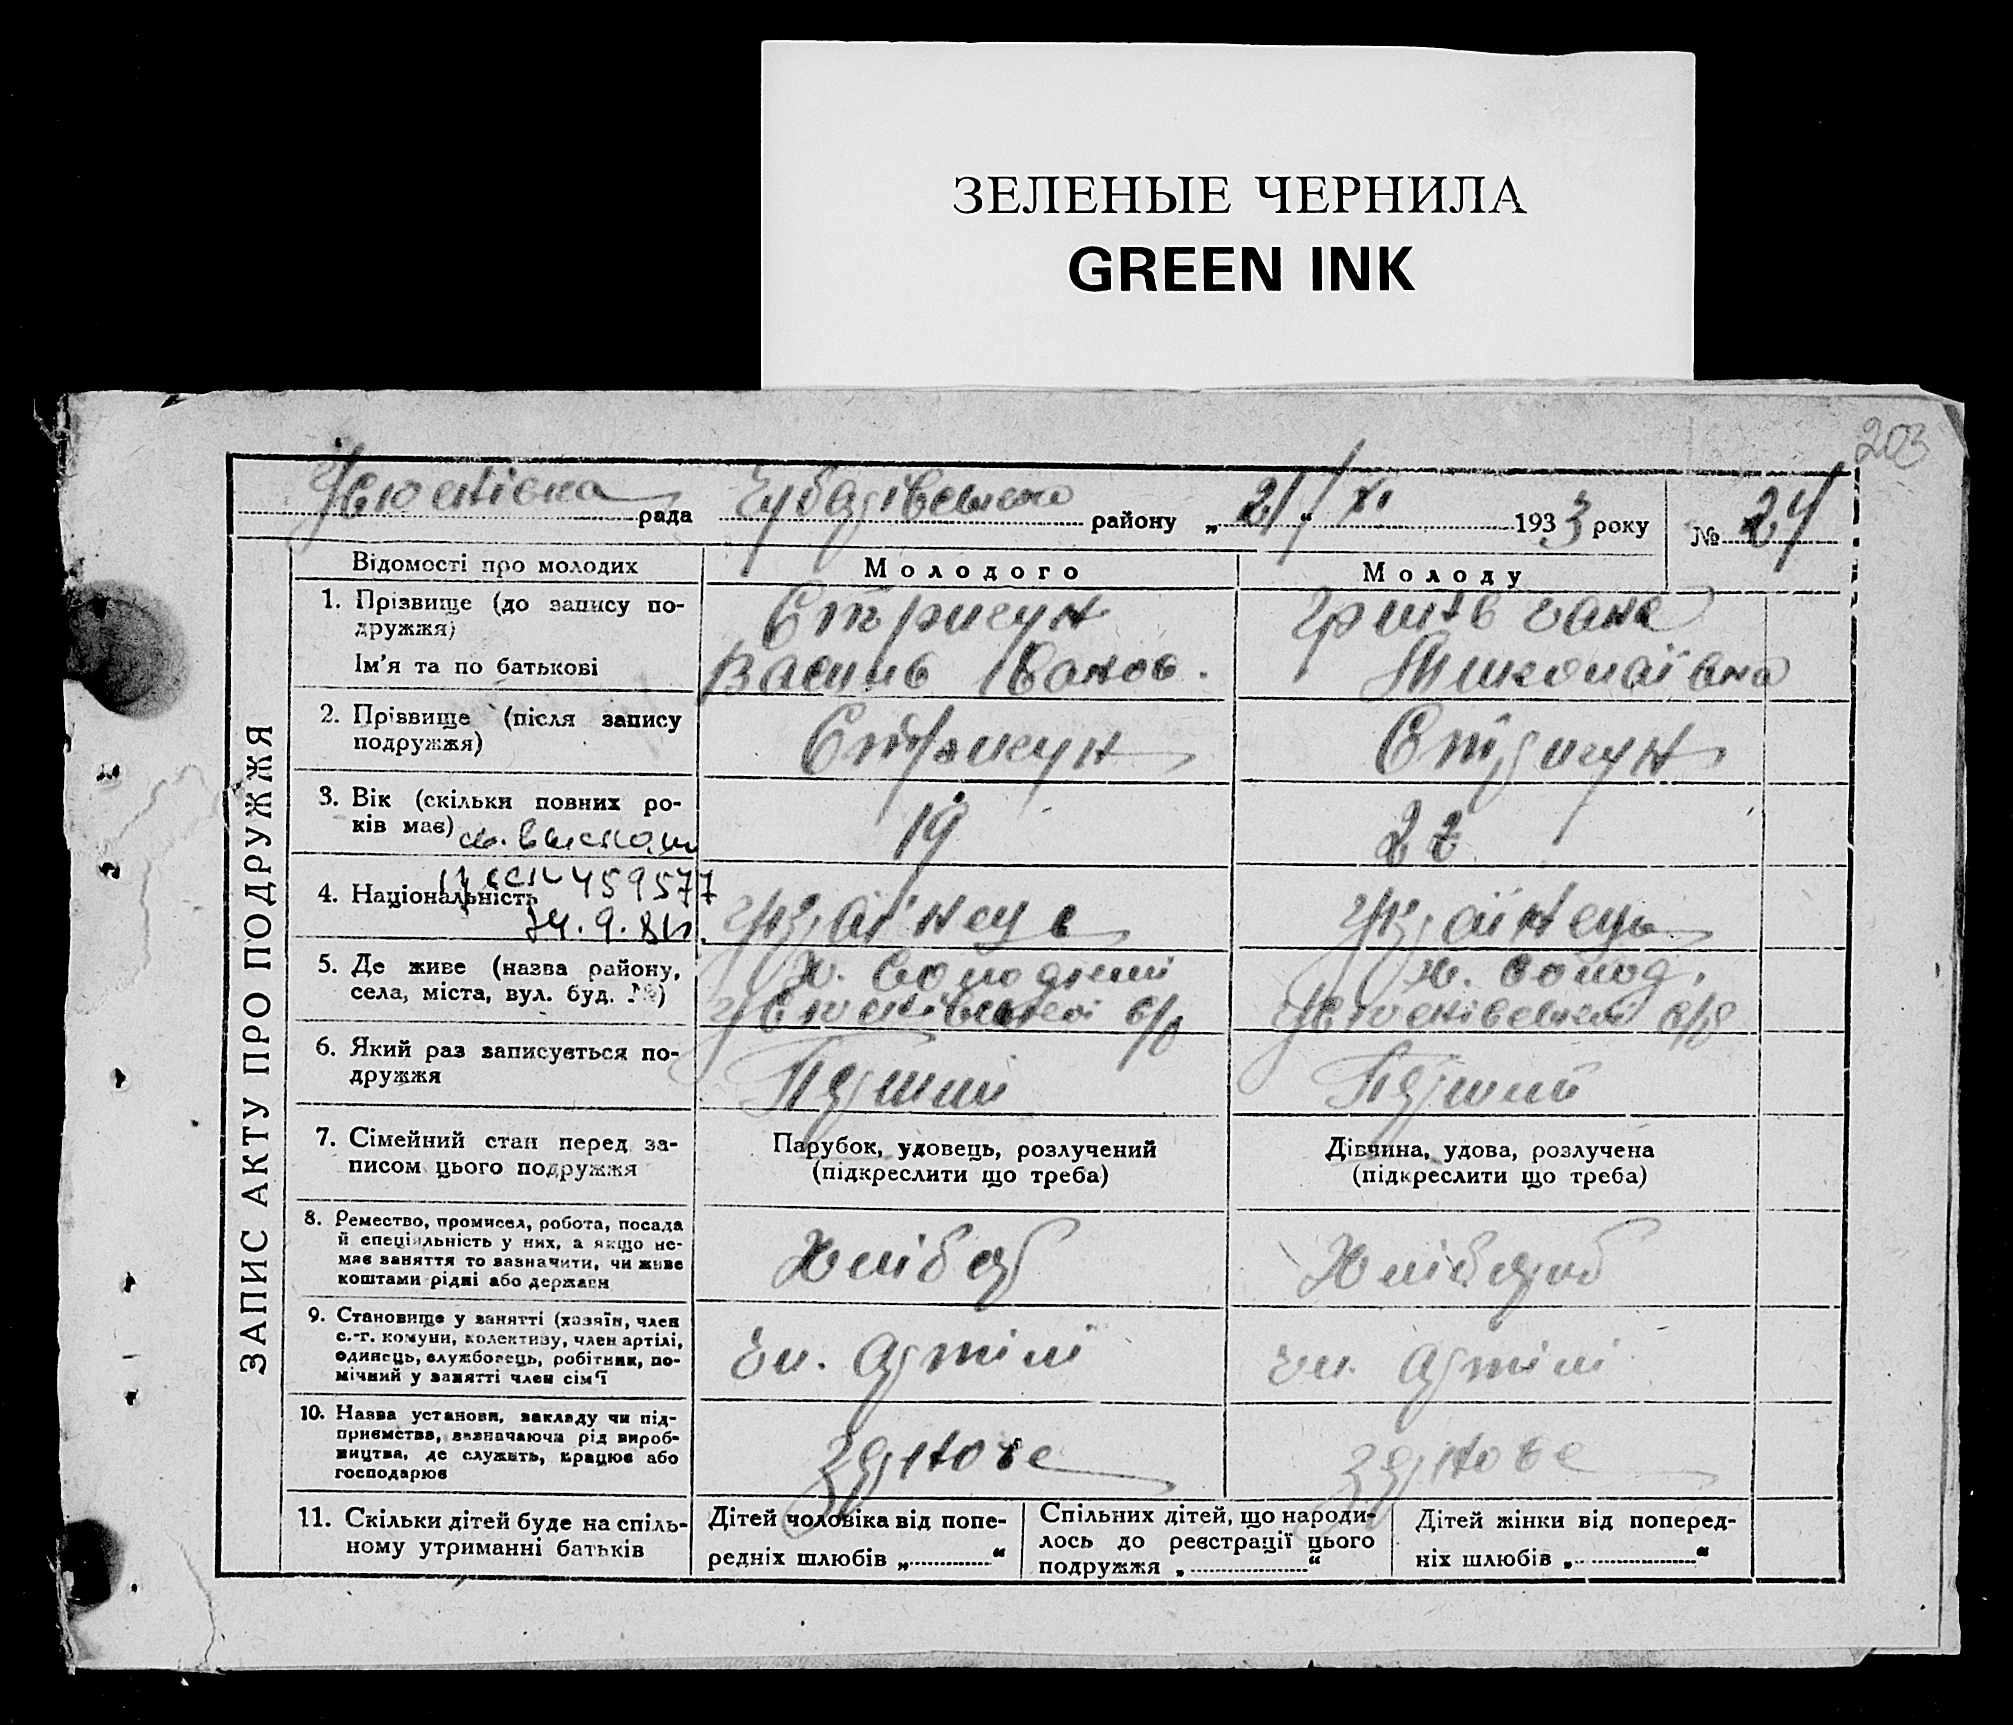 ЗЕЛЕНЫЕ ЧЕРНИЛА
GREEN INK
203
рада Чубарівського району „21/“ XI 1933 року № 24
ЗАПИС АКТУ ПРО ПОДРУЖЖЯ
Відомості про молодих Молодого Молоду
1. Прізвище (до запису по-
дружжя)
Стригун
Ім'я та по батькові
Василь Іванов.
Миколаївна
2. Прізвище (після запису
подружжя)
Стригун Стригун
3. Вік (скільки повних ро-
ків має)
19 22
4. Національність
459577
24.9.81
Українець Українець
5. Де живе (назва району,
села, міста, вул. буд. №)
х. Володькі х. Волод.
с/р с/р
6. Який раз записується по-
дружжя
Перший Перший
7. Сімейний стан перед за-
писом цього подружжя
Парубок, удовець, розлучений
(підкреслити що треба)
Дівчина, удова, розлучена
(підкреслити що треба)
8. Ремество, промисел, робота, посада
й спеціяльність у них, а якщо не-
має заняття то зазначити, чи живе
коштами рідні або держави
Хлібор Хлібороб
9. Становище у занятті (хазяїн, член
с.-г. комуни, колективу, член артілі,
одинець, службовець, робітник, по-
мічний у занятті член сім'ї
Чл. артілі Чл. артілі
10. Назва установи, закладу чи під-
приємства, зазначаючи рід вироб-
ництва, де служить, працює або
господарює
Зернове Зернове
11. Скільки дітей буде на спіль-
ному утриманні батьків
Дітей чоловіка від попе-
редніх шлюбів „ “
Спільних дітей, що народи-
лось до реєстрації цього
подружжя „ “
Дітей жінки від поперед-
ніх шлюбів „ “